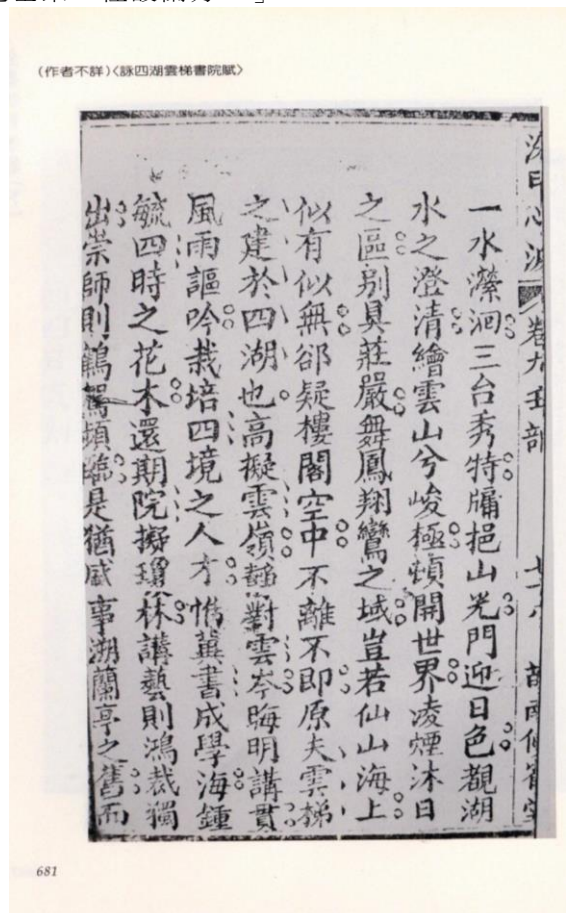 (作者不詳)〈詠四湖雲梯書院賦〉
卷九壬部
一水瀠洄三台秀特牖挹山光門迎日色觀湖
水之澄清繪雲山兮峻極頓開世界凌煙沐日
之區別具莊嚴舞鳳翔鸞之域豈若仙山海上
似有似無卻疑樓閣空中不離不即原夫雲梯
之建於四湖也高擬雲嶺對雲岑晦明講貫
風雨謳吟栽培四境之人才惟冀書成學海鍾
毓四時之花木還期院擬瓊林講藝則鴻裁獨
出崇師則鶴駕頻臨是猶盛事溯蘭亭之舊而
681